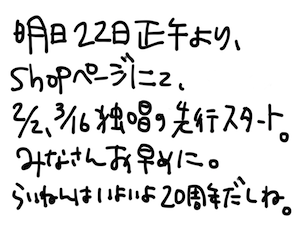 明日22日正午より、
shopページにて、
2/2、3/16独唱の先行スタート。
みなさんお早めに。
らいねんはいよいよ20周年だしね。